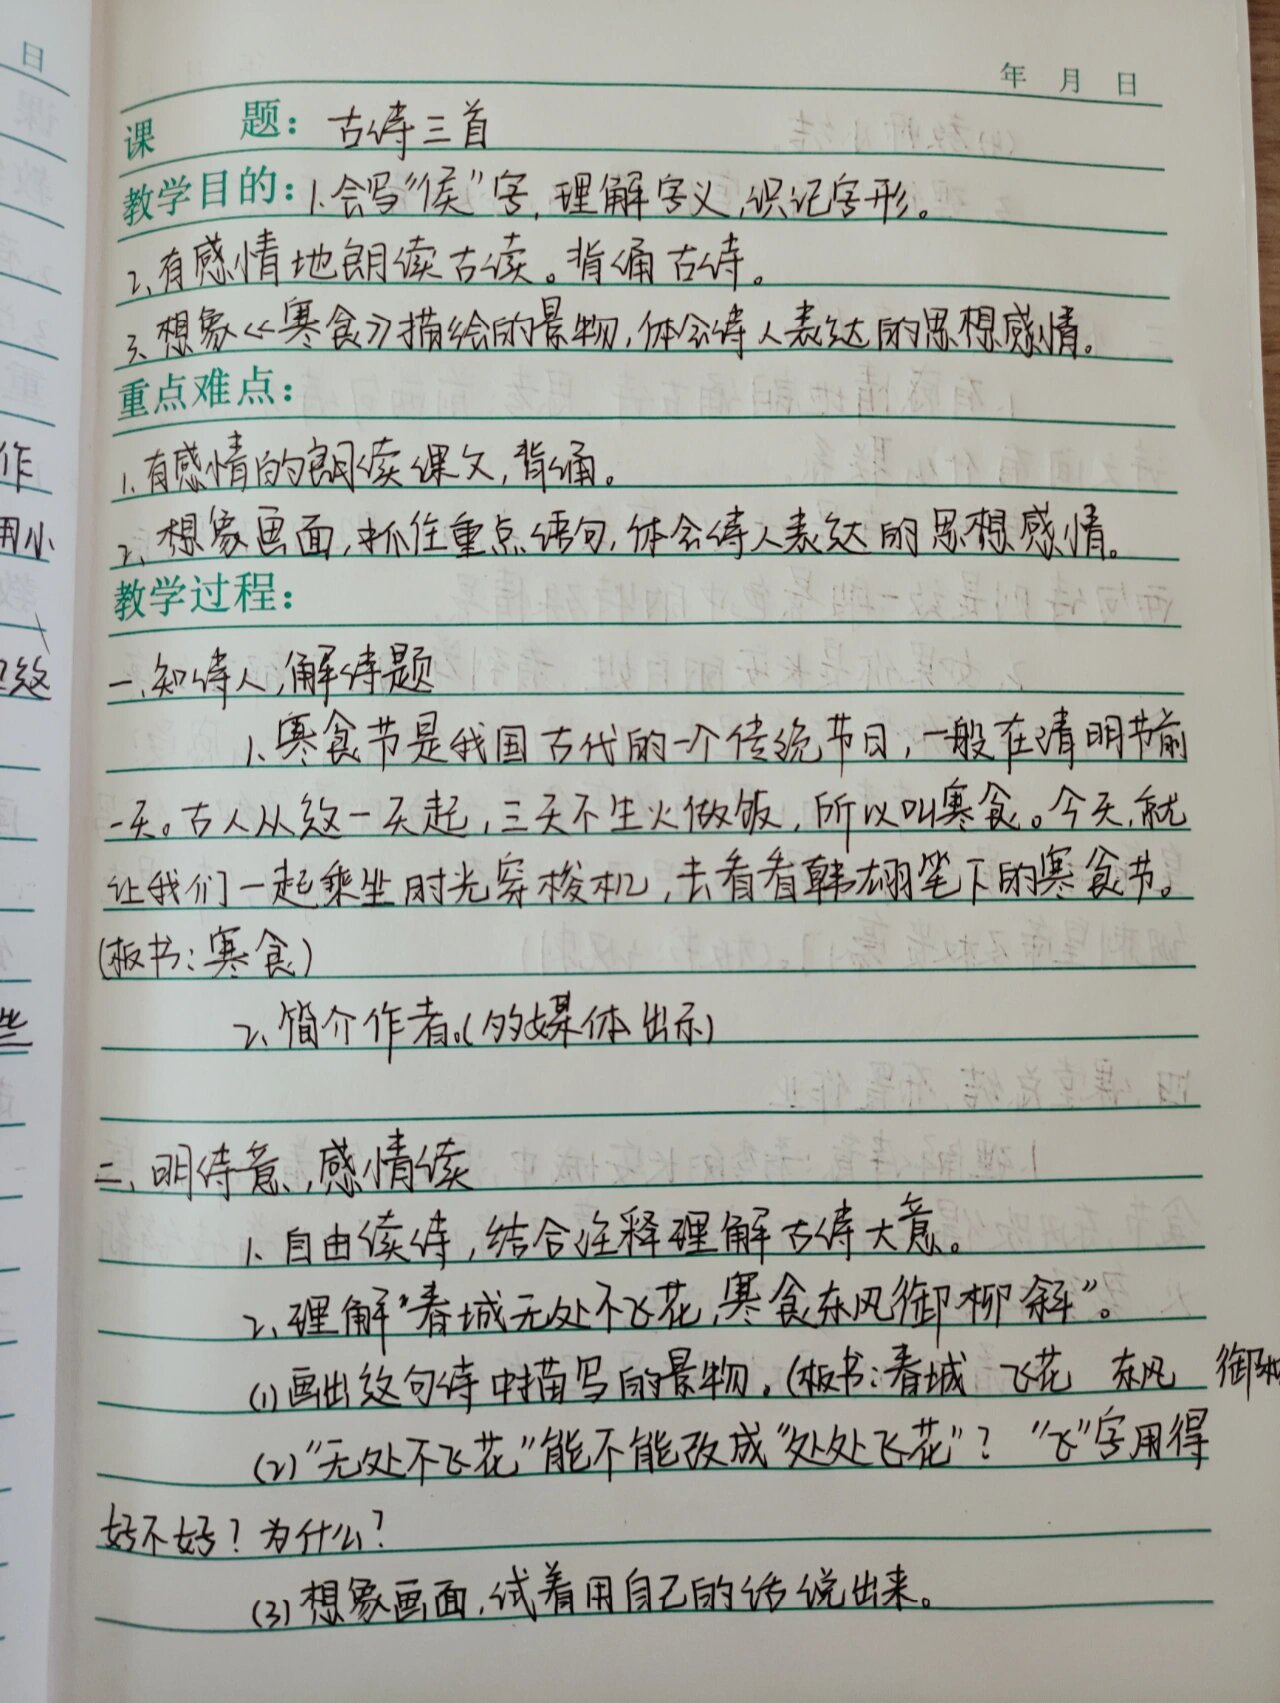 日
年 月 日
课 题：古诗三首
教学目的：1.会写"侯"字，理解字义，识记字形。
2、有感情地朗读古读。背诵古诗。
3、想象《寒食》描绘的景物，体会诗人表达的思想感情。
重点难点：
1.有感情的朗读课文，背诵。
2、想象画面，抓住重点语句，体会诗人表达的思想感情。
教学过程：
一、知诗人，解诗题
1、寒食节是我国古代的一个传统节日，一般在清明节前
一天。古人从这一天起，三天不生火做饭，所以叫寒食。今天，就
让我们一起乘坐时光穿梭机，去看看韩翃笔下的寒食节。
(板书：寒食)
2、简介作者。(的媒体出示)
二、明诗意，感情读
1、自由读诗，结合注释理解古诗大意。
2、理解"春城无处不飞花，寒食东风御柳斜"。
(1)画出这句诗中描写的景物。(板书：春城 飞花 东风 御柳
(2)"无处不飞花"能不能改成"处处飞花"？"飞"字用得
好不好？为什么？
(3)想象画面，试着用自己的话说出来。
作
用小
这
些